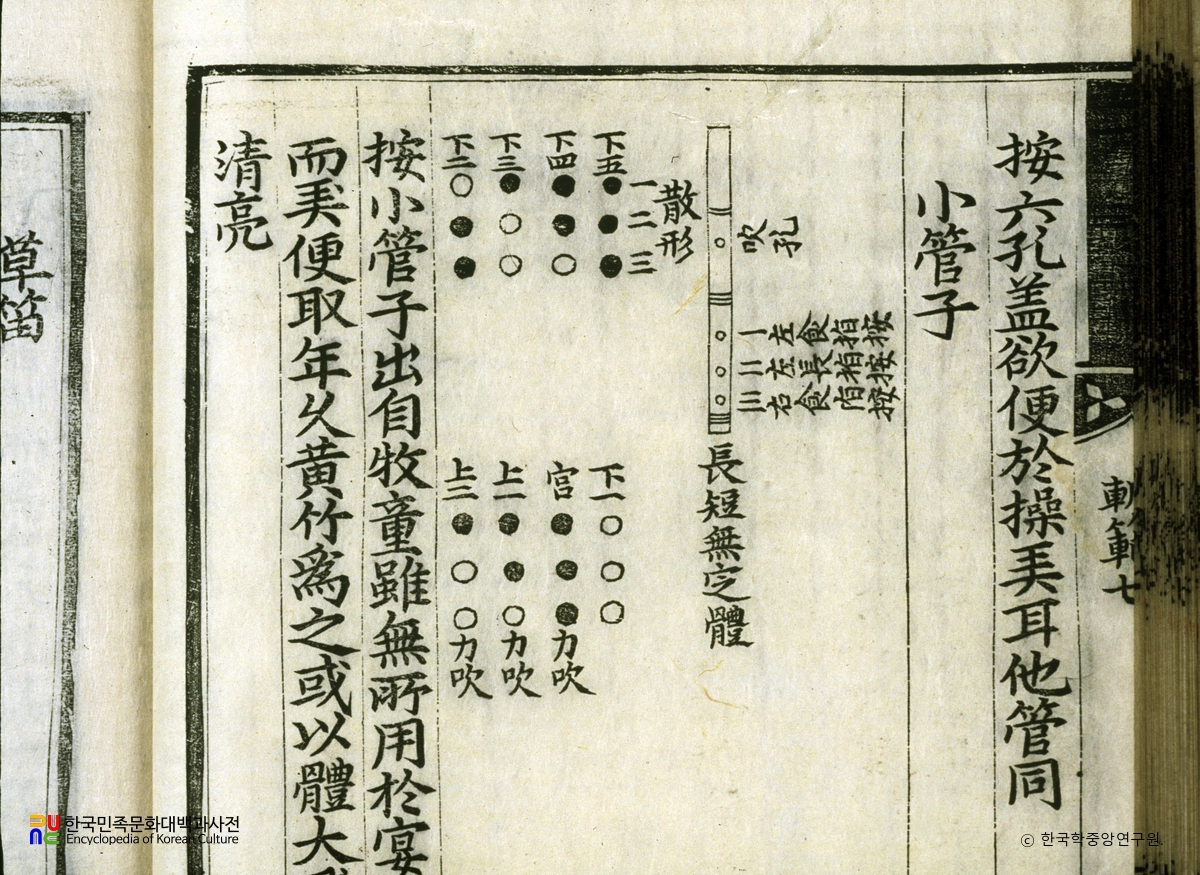 按六孔盖欲便於操弄耳他管同
小管子
一左食指按
二左長指按
三右食指按
吹孔
長短無定體
散形
一二三
下五
下四
下三
下二
下一
宮
力吹
上一
力吹
上二
力吹
按小管子出自牧童雖無所用於宴
而美便取年久黄竹爲之或以體大
清亮
軌範七
草笛
한국민족문화대백과사전
Encyclopedia of Korean Culture
ⓒ 한국학중앙연구원